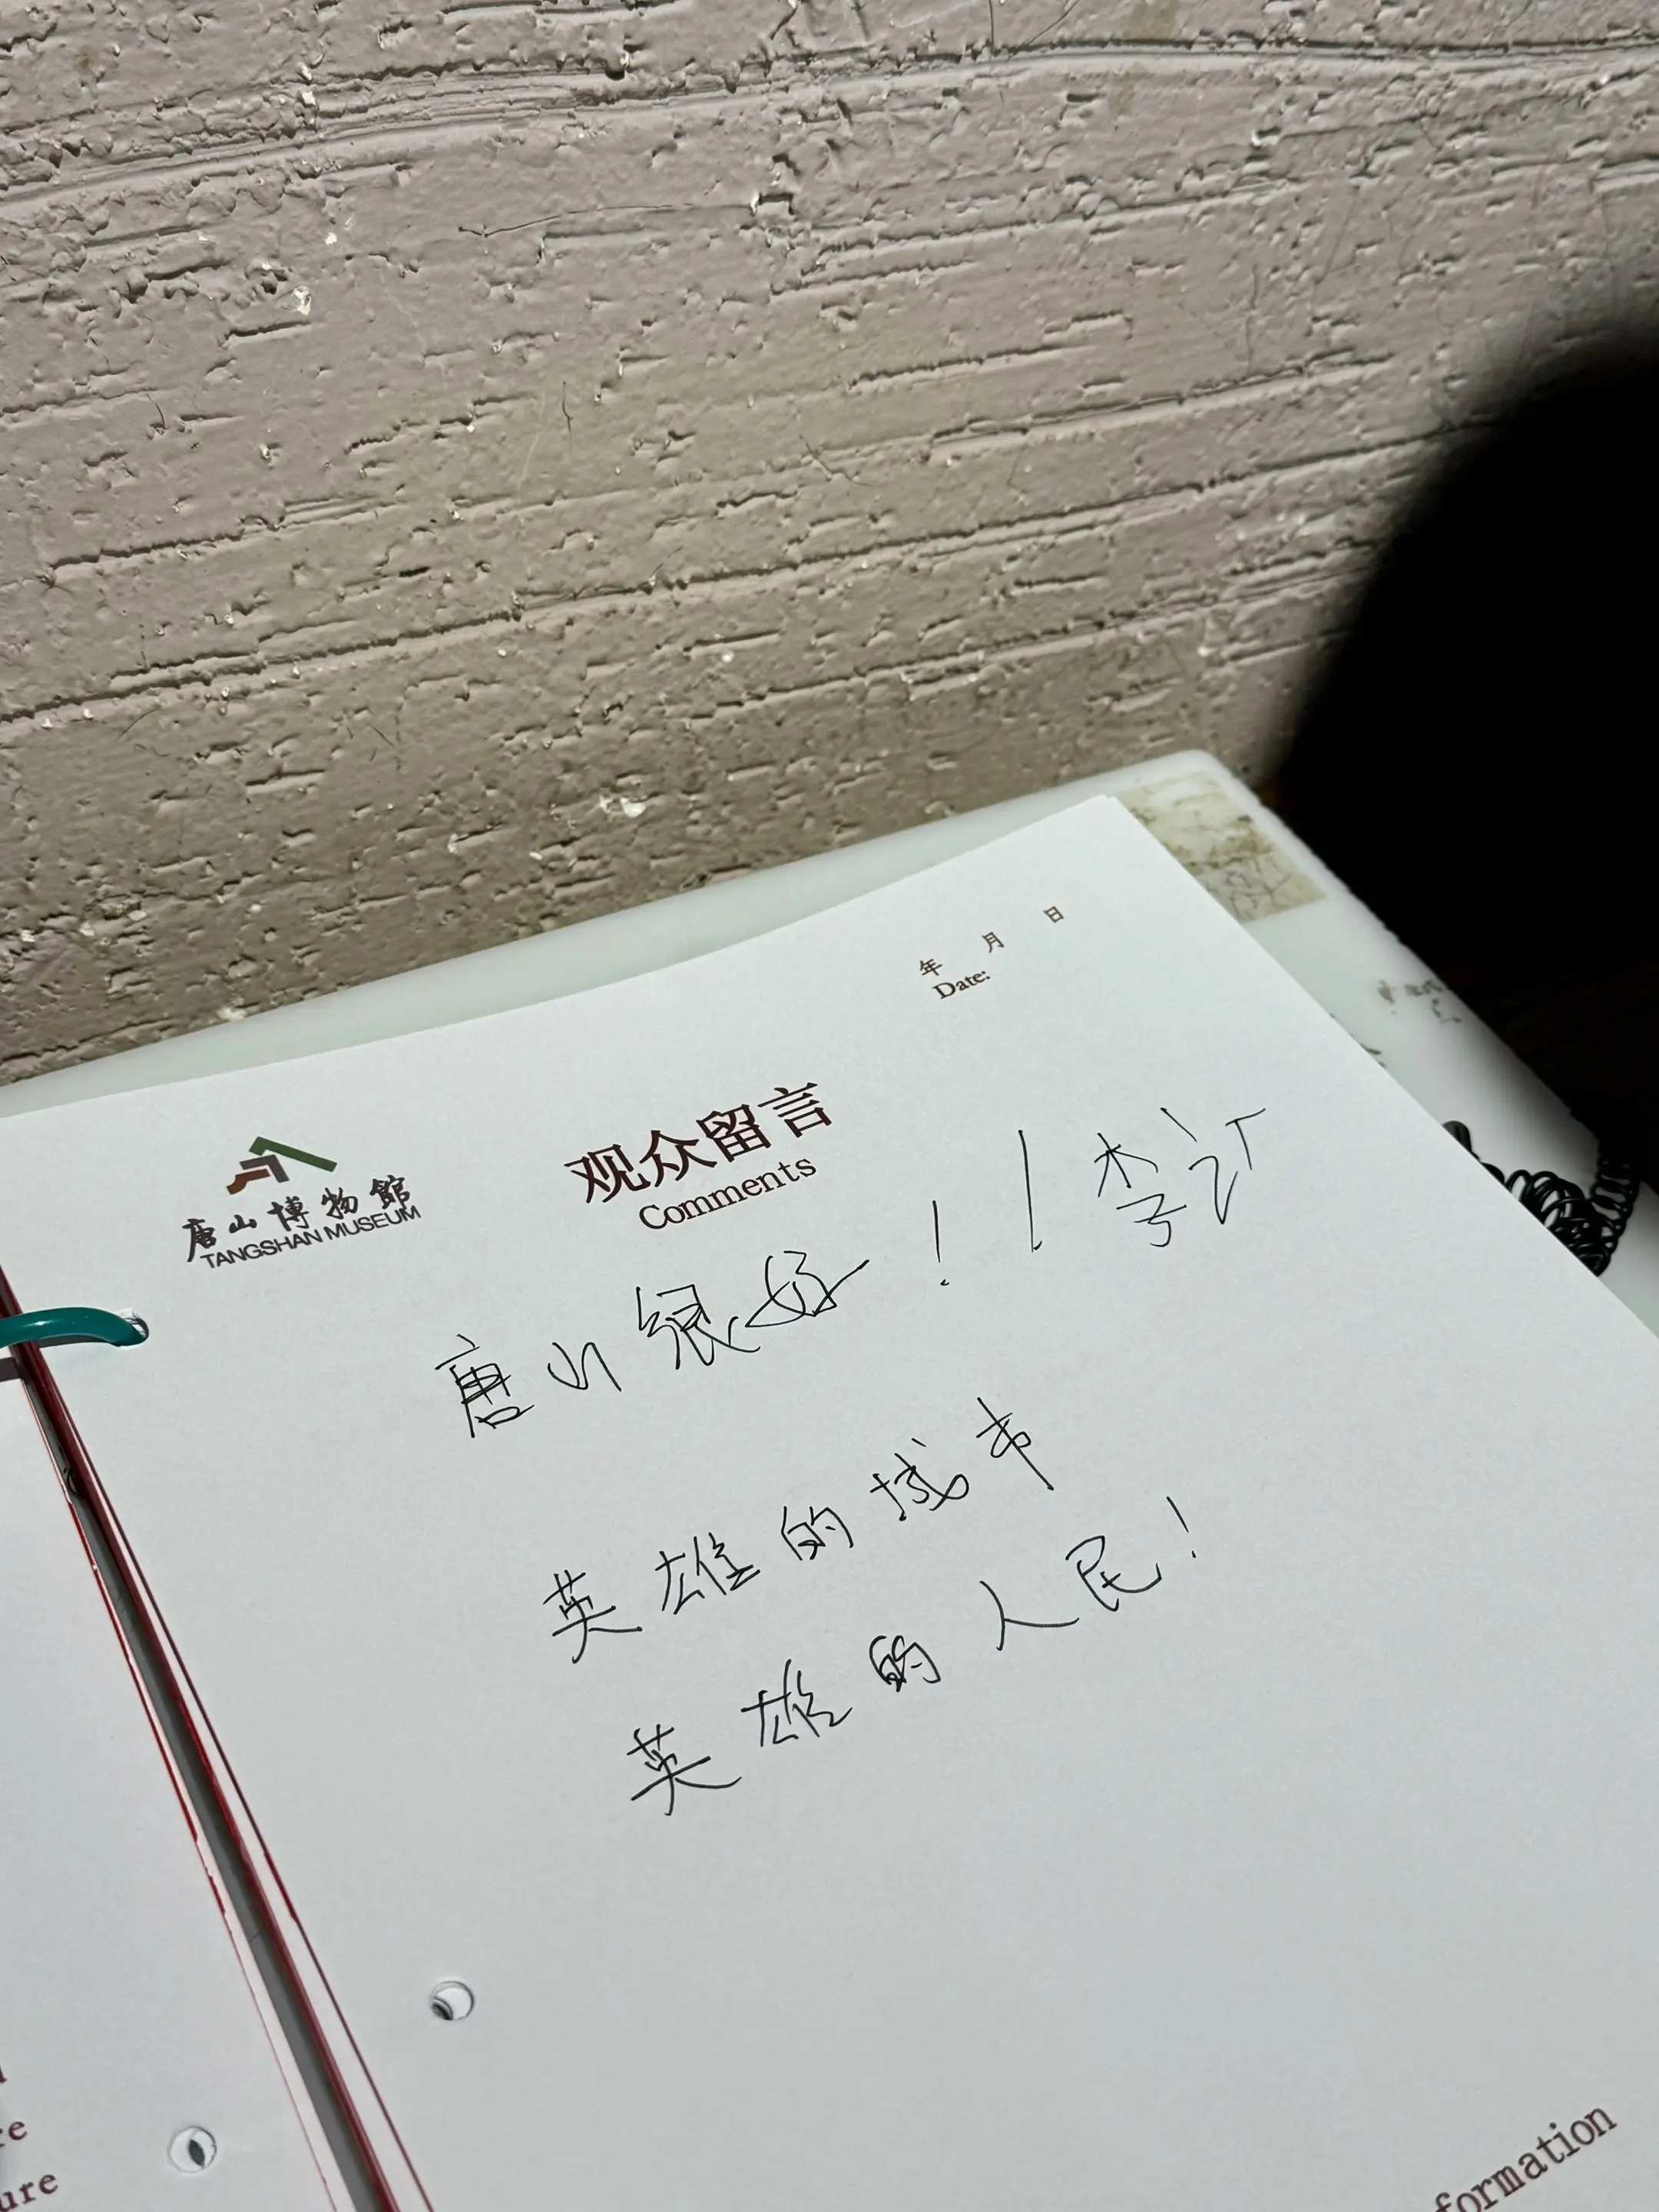 年 月 日
Date:
唐山博物館
TANGSHAN MUSEUM
观众留言
Comments
唐山很好！/ 李
英雄的城市
英雄的人民！
formation
ure